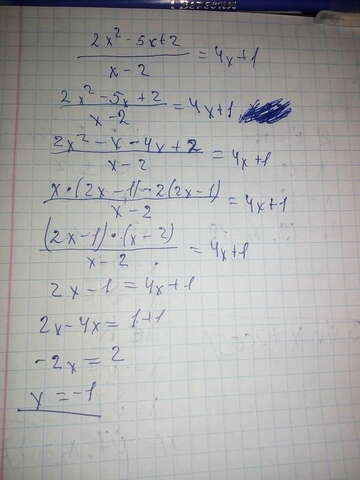 (2x² - 5x + 2)/(x - 2) = 4x + 1
(2x² - 5x + 2)/(x - 2) = 4x + 1
(2x² - x - 4x + 2)/(x - 2) = 4x + 1
(x · (2x - 1) - 2(2x - 1))/(x - 2) = 4x + 1
((2x - 1) · (x - 2))/(x - 2) = 4x + 1
2x - 1 = 4x + 1
2x - 4x = 1 + 1
-2x = 2
x = -1